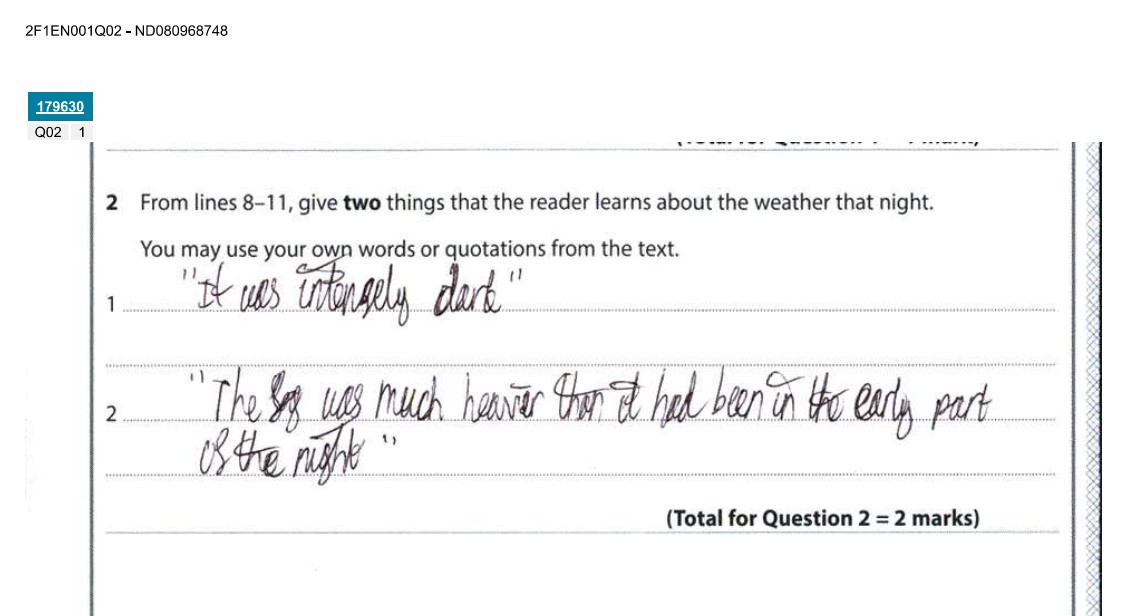 2F1EN001Q02 - ND080968748
179630
Q02 1
2 From lines 8–11, give two things that the reader learns about the weather that night.
You may use your own words or quotations from the text.
1 "It was intensely dark"
2 "The fog was much heavier than it had been in the early part
of the night"
(Total for Question 2 = 2 marks)